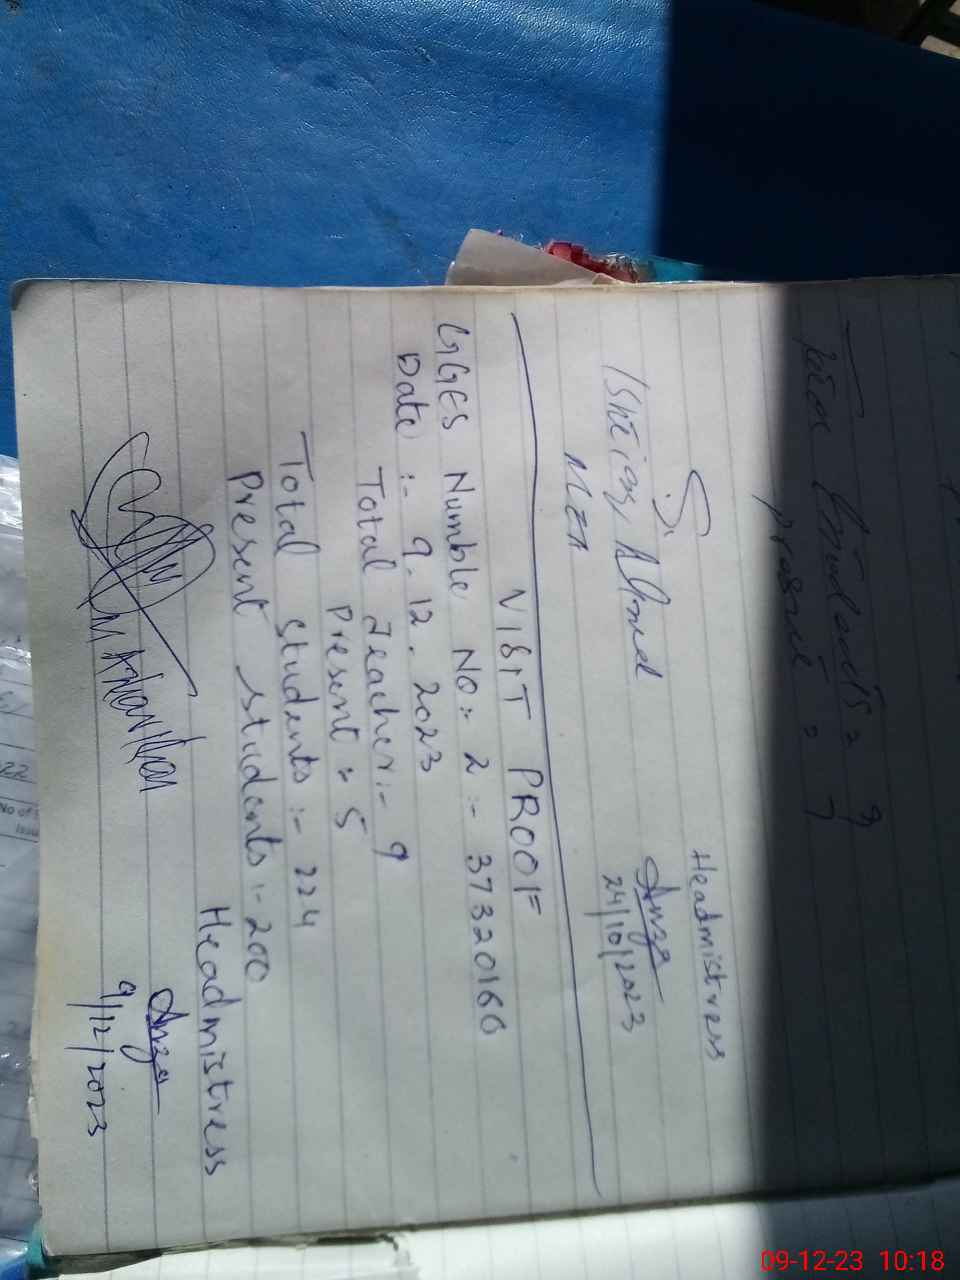 Total Students = 9
Present = 7
Headmistress
Ishtiaq Ahmed
Anza
MEA
24/10/2023
VISIT PROOF
GGES Numble No: 2 :- 37320160
Date :- 9.12.2023
Total Teacher :- 9
Present = 5
Total Students :- 224
Present Students :- 200
Headmistress
Anza
9/12/2023
2022
No of
Issu
09-12-23 10:18